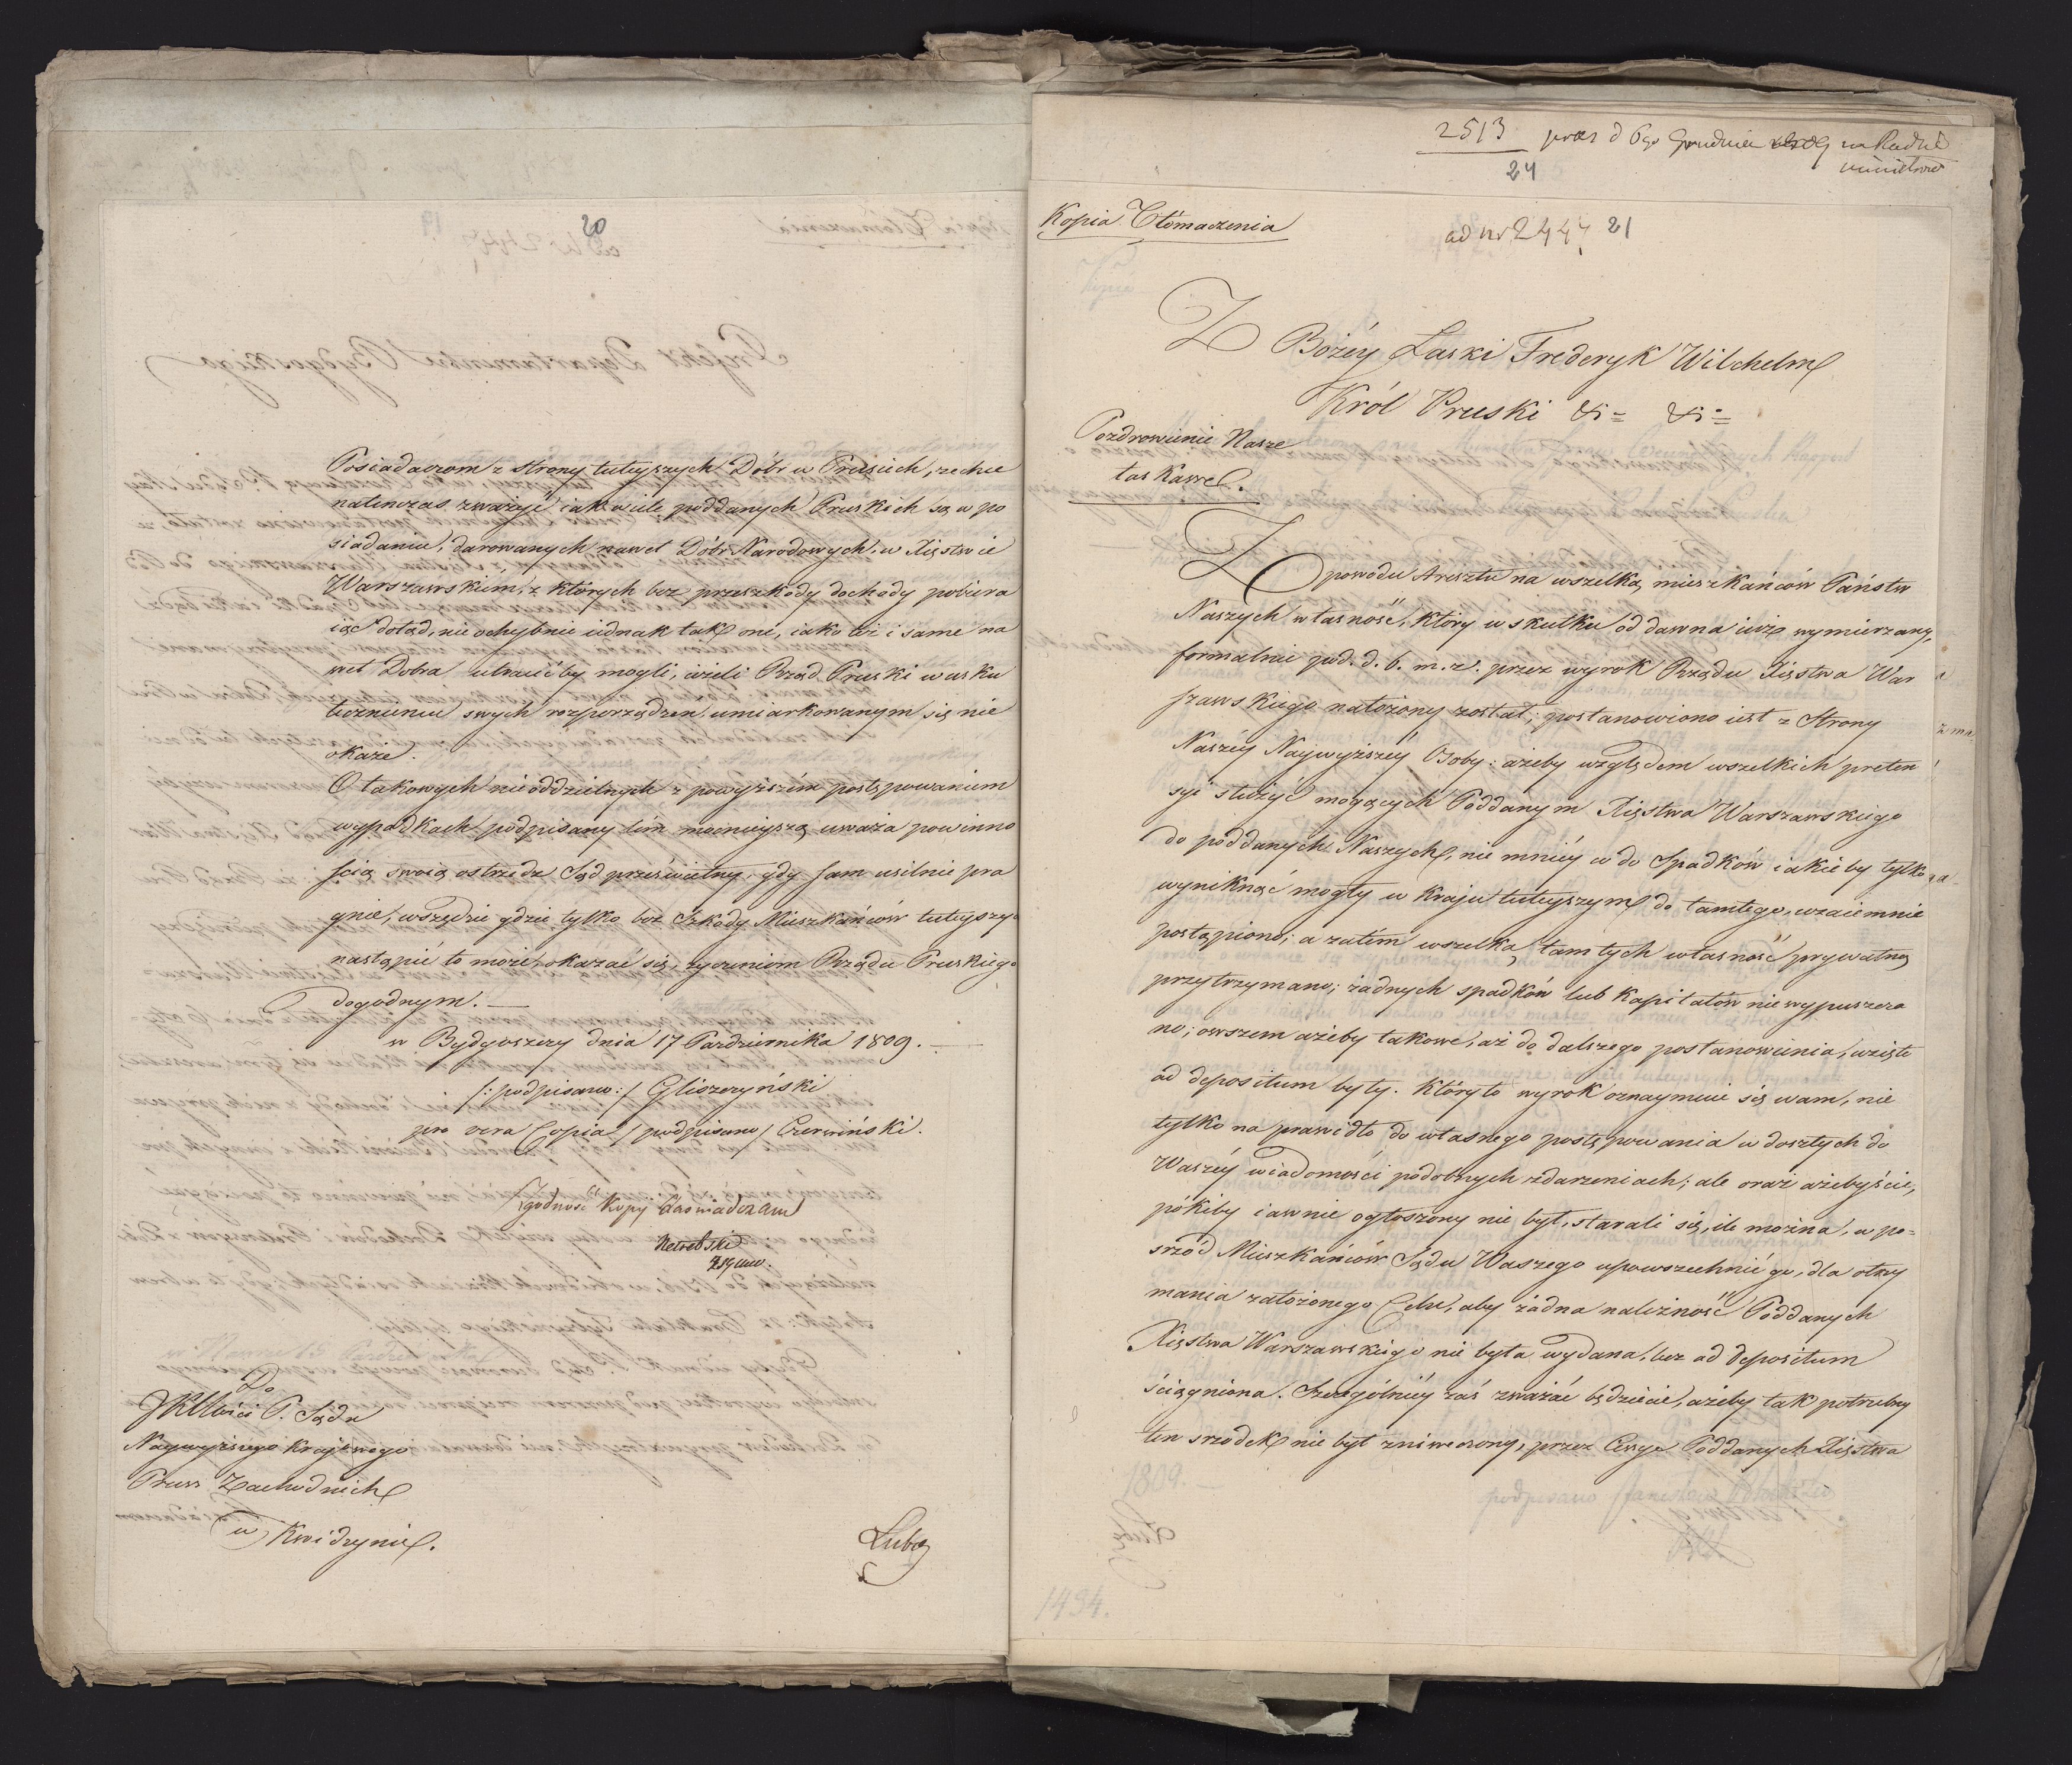 20
Posiadaczom z strony tuteyszych Dóbr w Prusiech, zechce
natenczas zważyć iak wiele poddanych Pruskich są w po
siadaniu, darowanych nawet Dóbr Narodowych, w Xięstwie
Warszawskim, z których bez przeszkody dochody pobiera
iąc dotąd, nieochybnie iednak tak one, iako też i same na
wet Dobra utracićby mogli, ieżeli Rząd Pruski w usku
tecznieniu swych rozporządzen, umiarkowanym się nie
okaże.
O takowych nieoddzielnych z powyższém postępowaniem
wypadkach podpisany tém mocnieyszą uważa powinno
ścią swoią ostrzedz Sąd prześwietny, gdy sam usilnie pra
gnie, wszędzie gdzie tylko bez Szkody Mieszkańców tuteyszy
nastąpić to może, okazać się życzeniom Rządu Pruskiego
dogodnym. —
w Bydgoszczy dnia 17 Pazdziernika 1809. —
/: podpisano :/ Gliszczyński
pro vera Copia / podpisano / Czerwiński.
Zgodność kopij zaświadczam
Do
JKMości P. Sądu
Naywyższego Krajowego
Pruss Zachodnich
w Kwidzynie.
Luba
2513 praes d 6go Grudnia 1809 na Radzie
24 ministrów
Kopia Tłómaczenia
ad nr 2447 21
Z Bożéy Łaski Frederyk Wilchelm
Król Pruski &= &=
Pozdrowienie Nasze
łaskawe.
Z powodu Aresztu na wszelką mieszkańców Państw
Naszych własność, który w skutku od dawna iuż wymierzany,
formalnie pod. d. 6. m. z. przez wyrok Rządu Xięstwa War
szawskiego nałożony został; postanowiono iest z Strony
Naszéy Naywyższéy Osoby: ażeby względem wszelkich preten
syi służyć mogących Poddanym Xięstwa Warszawskiego
do poddanych Naszych, nie mniéy w do Spadków iakieby tylko
wyniknąć mogły w Kraju tuteyszym do tamtego, wzaiemnie
postąpiono; a zatém wszelką tamtych własność prywatną
przytrzymano; żadnych spadków lub Kapitałów nie wypuszcza
no; owszem ażeby takowe, aż do dalszego postanowienia, wzięte
ad depositum były. Któryto wyrok oznaymuie się wam, nie
tylko na prawidło do własnego postępowania w doszłych do
Waszéy wiadomości podobnych zdarzeniach; ale oraz ażebyście,
pókiby iawnie ogłoszony nie był, starali się, ile można, w po=
srzód Mieszkańców Sądu Waszego upowszechnić go, dla otrzy
mania założonego Celu, aby żadna należność Poddanych
Xięstwa Warszawskiego nie była wydana, lecz ad depositum
ściągniona. Szczególniéy zaś zważać będziecie, ażeby tak potrzebny
ten srzodek nie był zniweczony, przez Cessye Poddanych Xięstwa